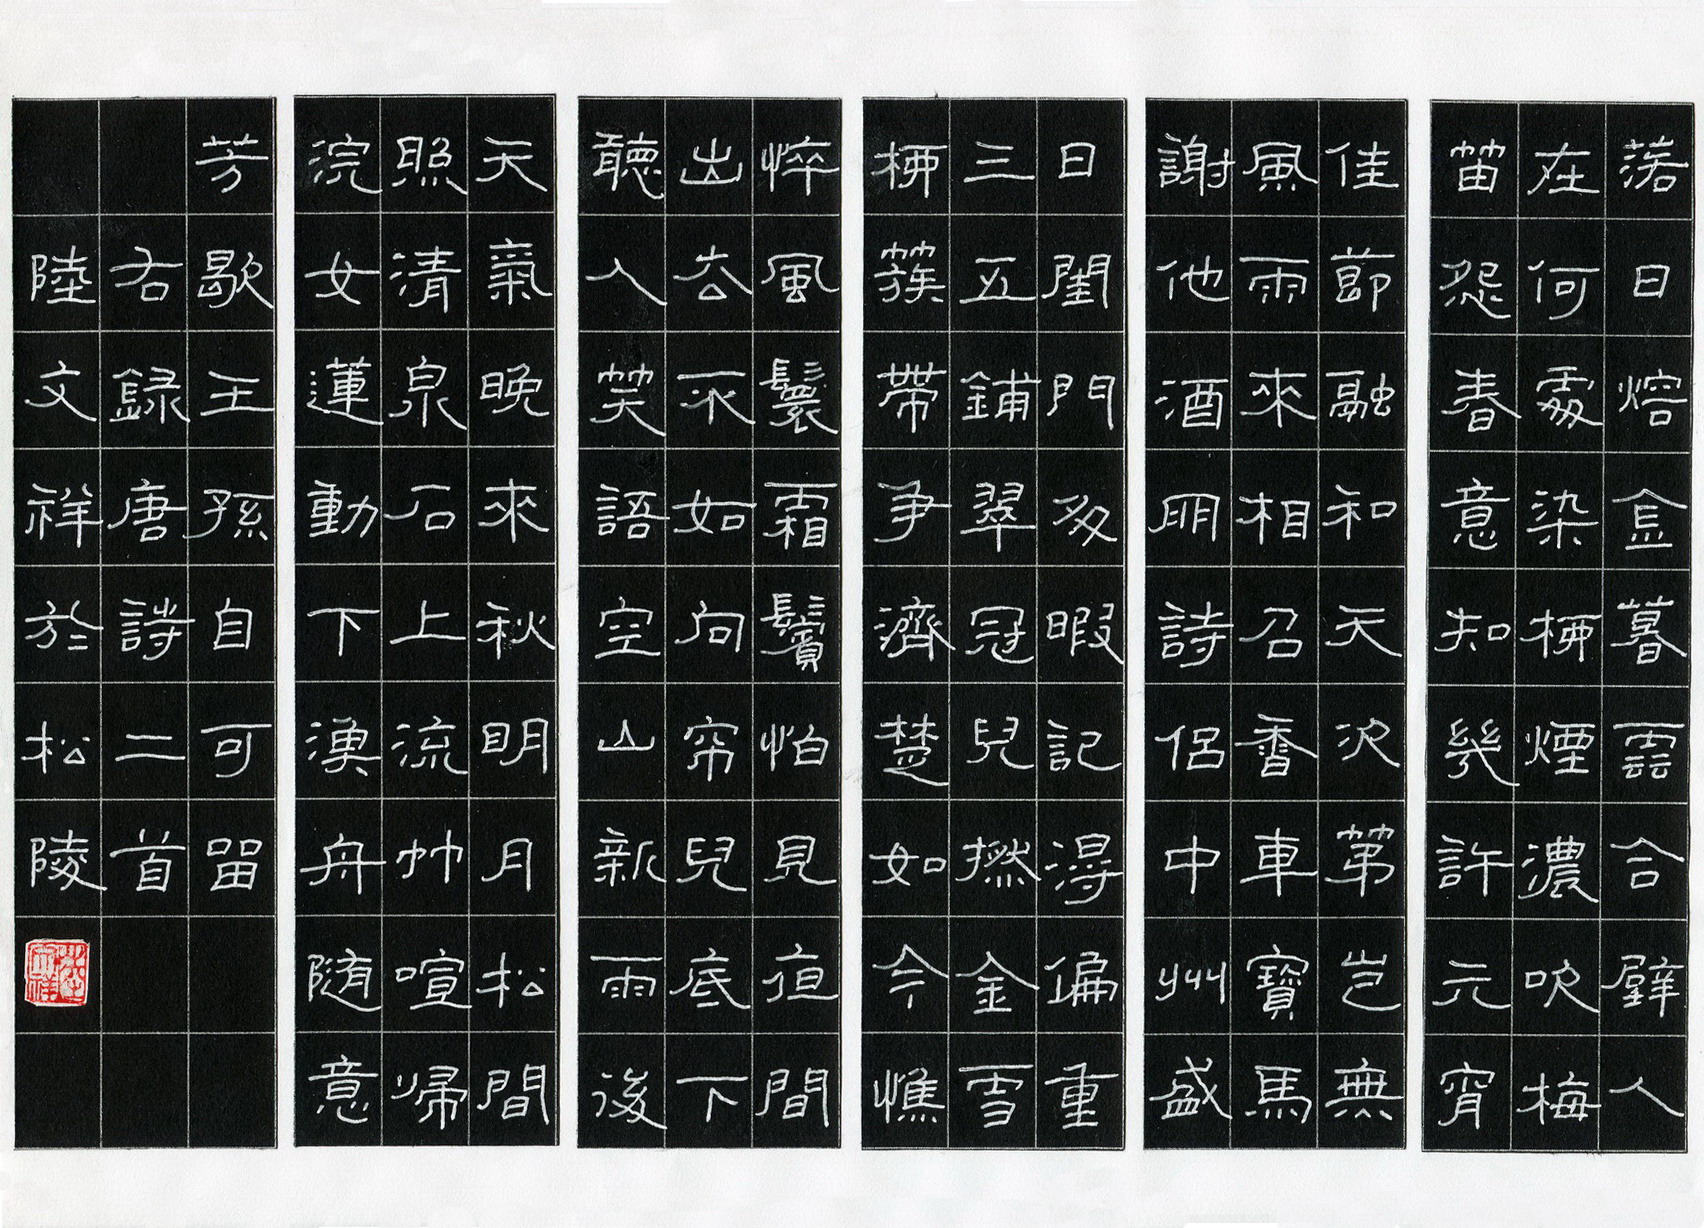 落日熔金暮雲合璧人
在何處染柳煙濃吹梅
笛怨春意知幾許元宵
佳節融和天次第豈無
風雨來相召香車寶馬
謝他酒朋詩侶中州盛
日閨門多暇記得偏重
三五鋪翠冠兒撚金雪
柳簇帶爭濟楚如今憔
悴風鬟霜鬢怕見夜間
出去不如向帘兒底下
聽人笑語空山新雨後
天氣晚來秋明月松間
照清泉石上流竹喧歸
浣女蓮動下漁舟隨意
芳歇王孫自可留
右錄唐詩二首
陸文祥於松陵